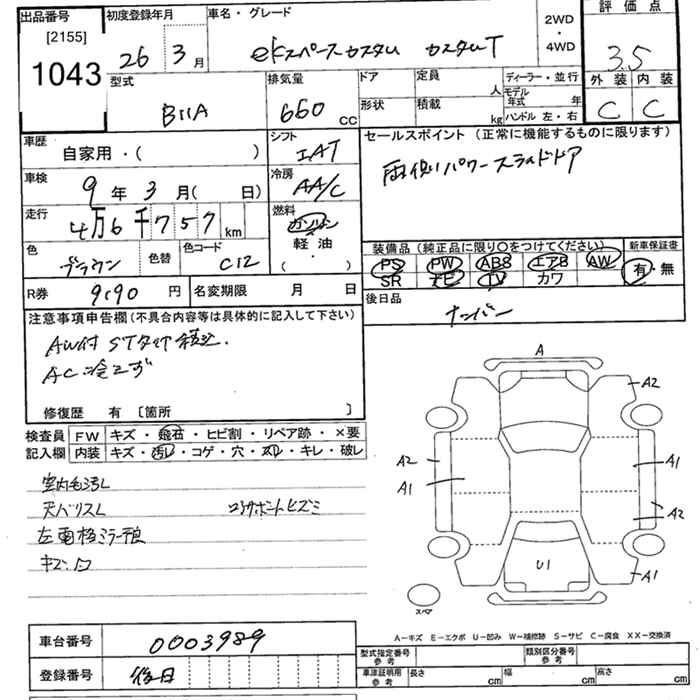 出品番号 [2155] 1043
初度登録年月 26 3月
車名・グレード ekスペースカスタム カスタムT
2WD・4WD
評価点 3.5
外装 内装
C C
型式 B11A
排気量 660 CC
ドア 定員 人
形状 積載 kg
ディーラー・並行
モデル年式 年
ハンドル 左・右
車歴 自家用・( )
シフト IAT
セールスポイント (正常に機能するものに限ります)
両側パワースライドドア
車検 9年 3月( 日)
冷房 AA/C
走行 4万6千757 km
燃料 ガソリン 軽油・( )
色 ブラウン 色替 色コード C12
装備品 (純正品に限り○をつけてください)
PS PW ABS エアB AW
SR ナビ TV カワ
新車保証書 有・無
R券 9190 円 名変期限 月 日
後日品 ナンバー
注意事項申告欄(不具合内容等は具体的に記入して下さい)
AW付 STタイヤ積込.
AC冷えず
修復歴 有 〔箇所 〕
検査員記入欄
FW キズ・飛石・ヒビ割・リペア跡・×要
内装 キズ・汚レ・コゲ・穴・スレ・キレ・破レ
室内毛汚レ
天バリスレ コアサポートヒズミ
左電格ミラー不良
キズ・凹
A
A2
A2 A1
A1 A2
U1 A1
スペア
A-キズ E-エクボ U-凹み W-補修跡 S-サビ C-腐食 XX-交換済
車台番号 0003989
登録番号 後日
型式指定番号 参考 類別区分番号 参考
車庫証明用 参考 長さ cm 幅 cm 高さ cm